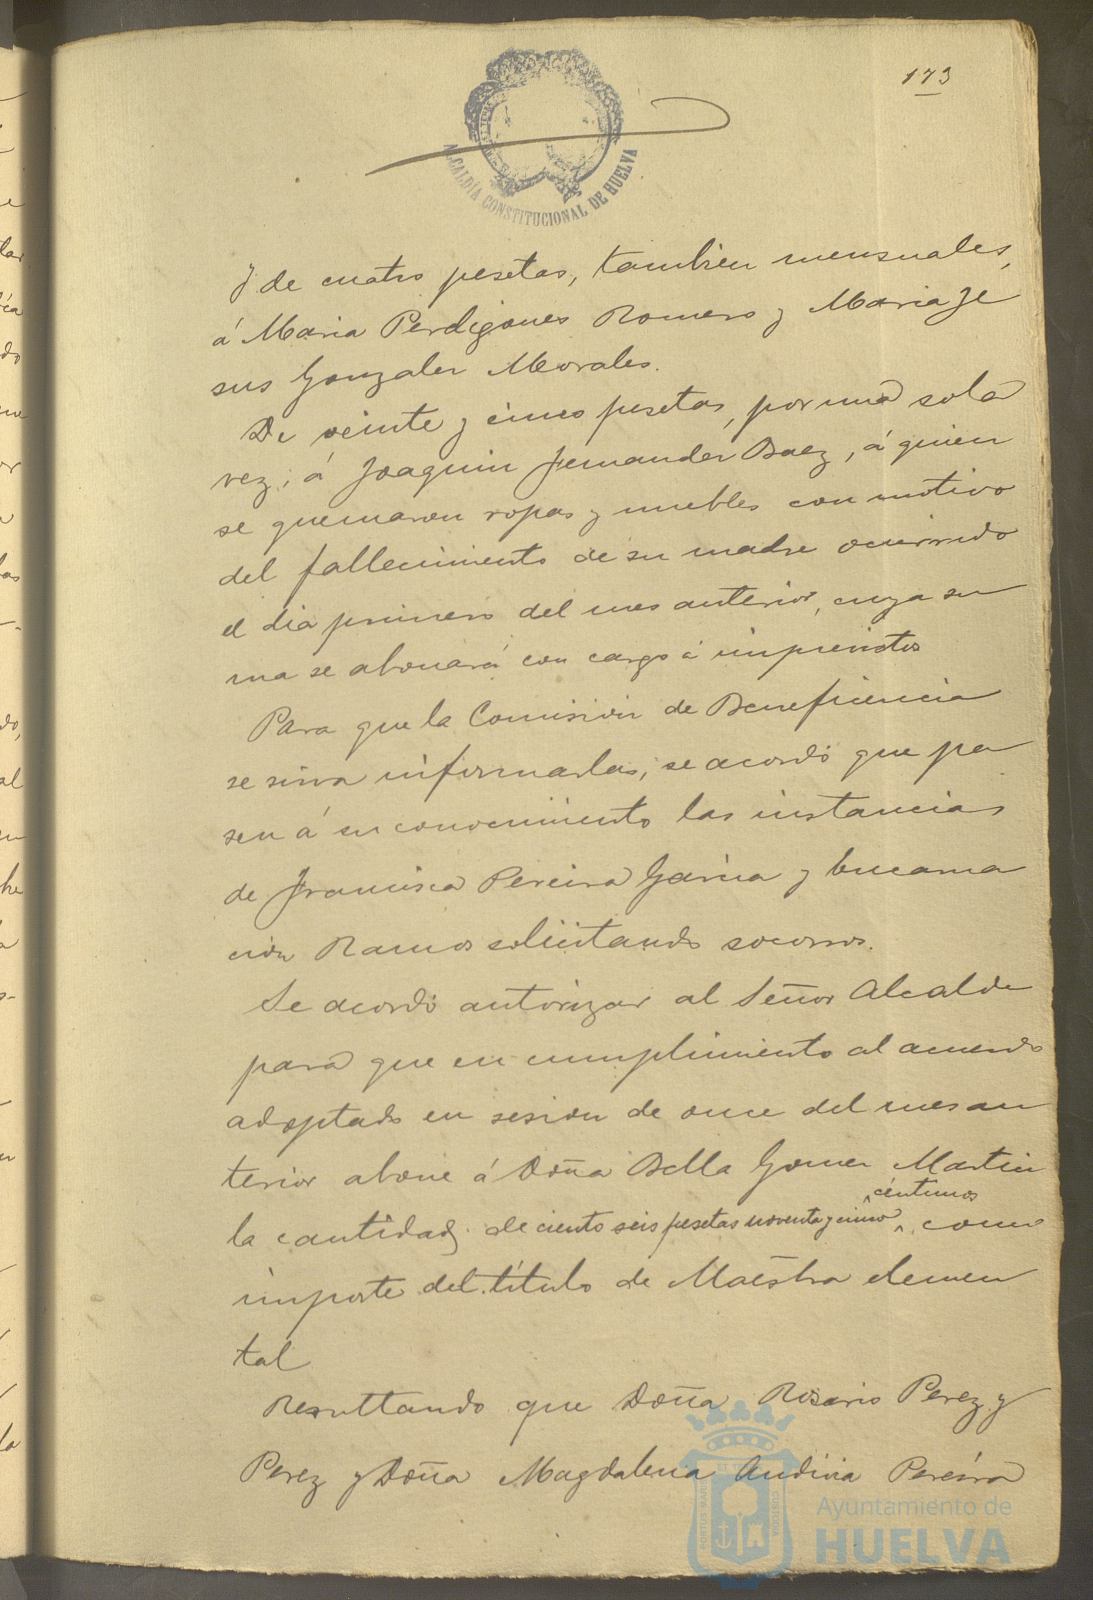 173
ALCALDÍA CONSTITUCIONAL DE HUELVA
y de cuatro pesetas, tambien mensuales,
á Maria Perdigones Romero y Maria Je
sus Gonzalez Morales.
De veinte y cinco pesetas, por una sola
vez, á Joaquin Fernandez Baez, á quien
se quemaron ropas y muebles con motivo
del fallecimiento de su madre ocurrido
el dia primero del mes anterior, cuya su
ma se abonará con cargo á imprevistos
Para que la Comision de Beneficencia
se sirva informarlas, se acordó que pa
sen á su conocimiento las instancias
de Francisca Pereira Garcia y Encarna
ción Ramos solicitando socorros.
Se acordó autorizar al Señor Alcalde
para que en cumplimiento al acuerdo
adoptado en sesion de once del mes an
terior abone á Doña Bella Gomez Martin
la cantidad de ciento seis pesetas noventa y cinco céntimos como
importe del título de Maestra elemen
tal
Resultando que Doña Rosario Perez y
Perez y Doña Magdalena Andivia Pereira
PORTUS MARIS
CUSTODIA
Ayuntamiento de
HUELVA